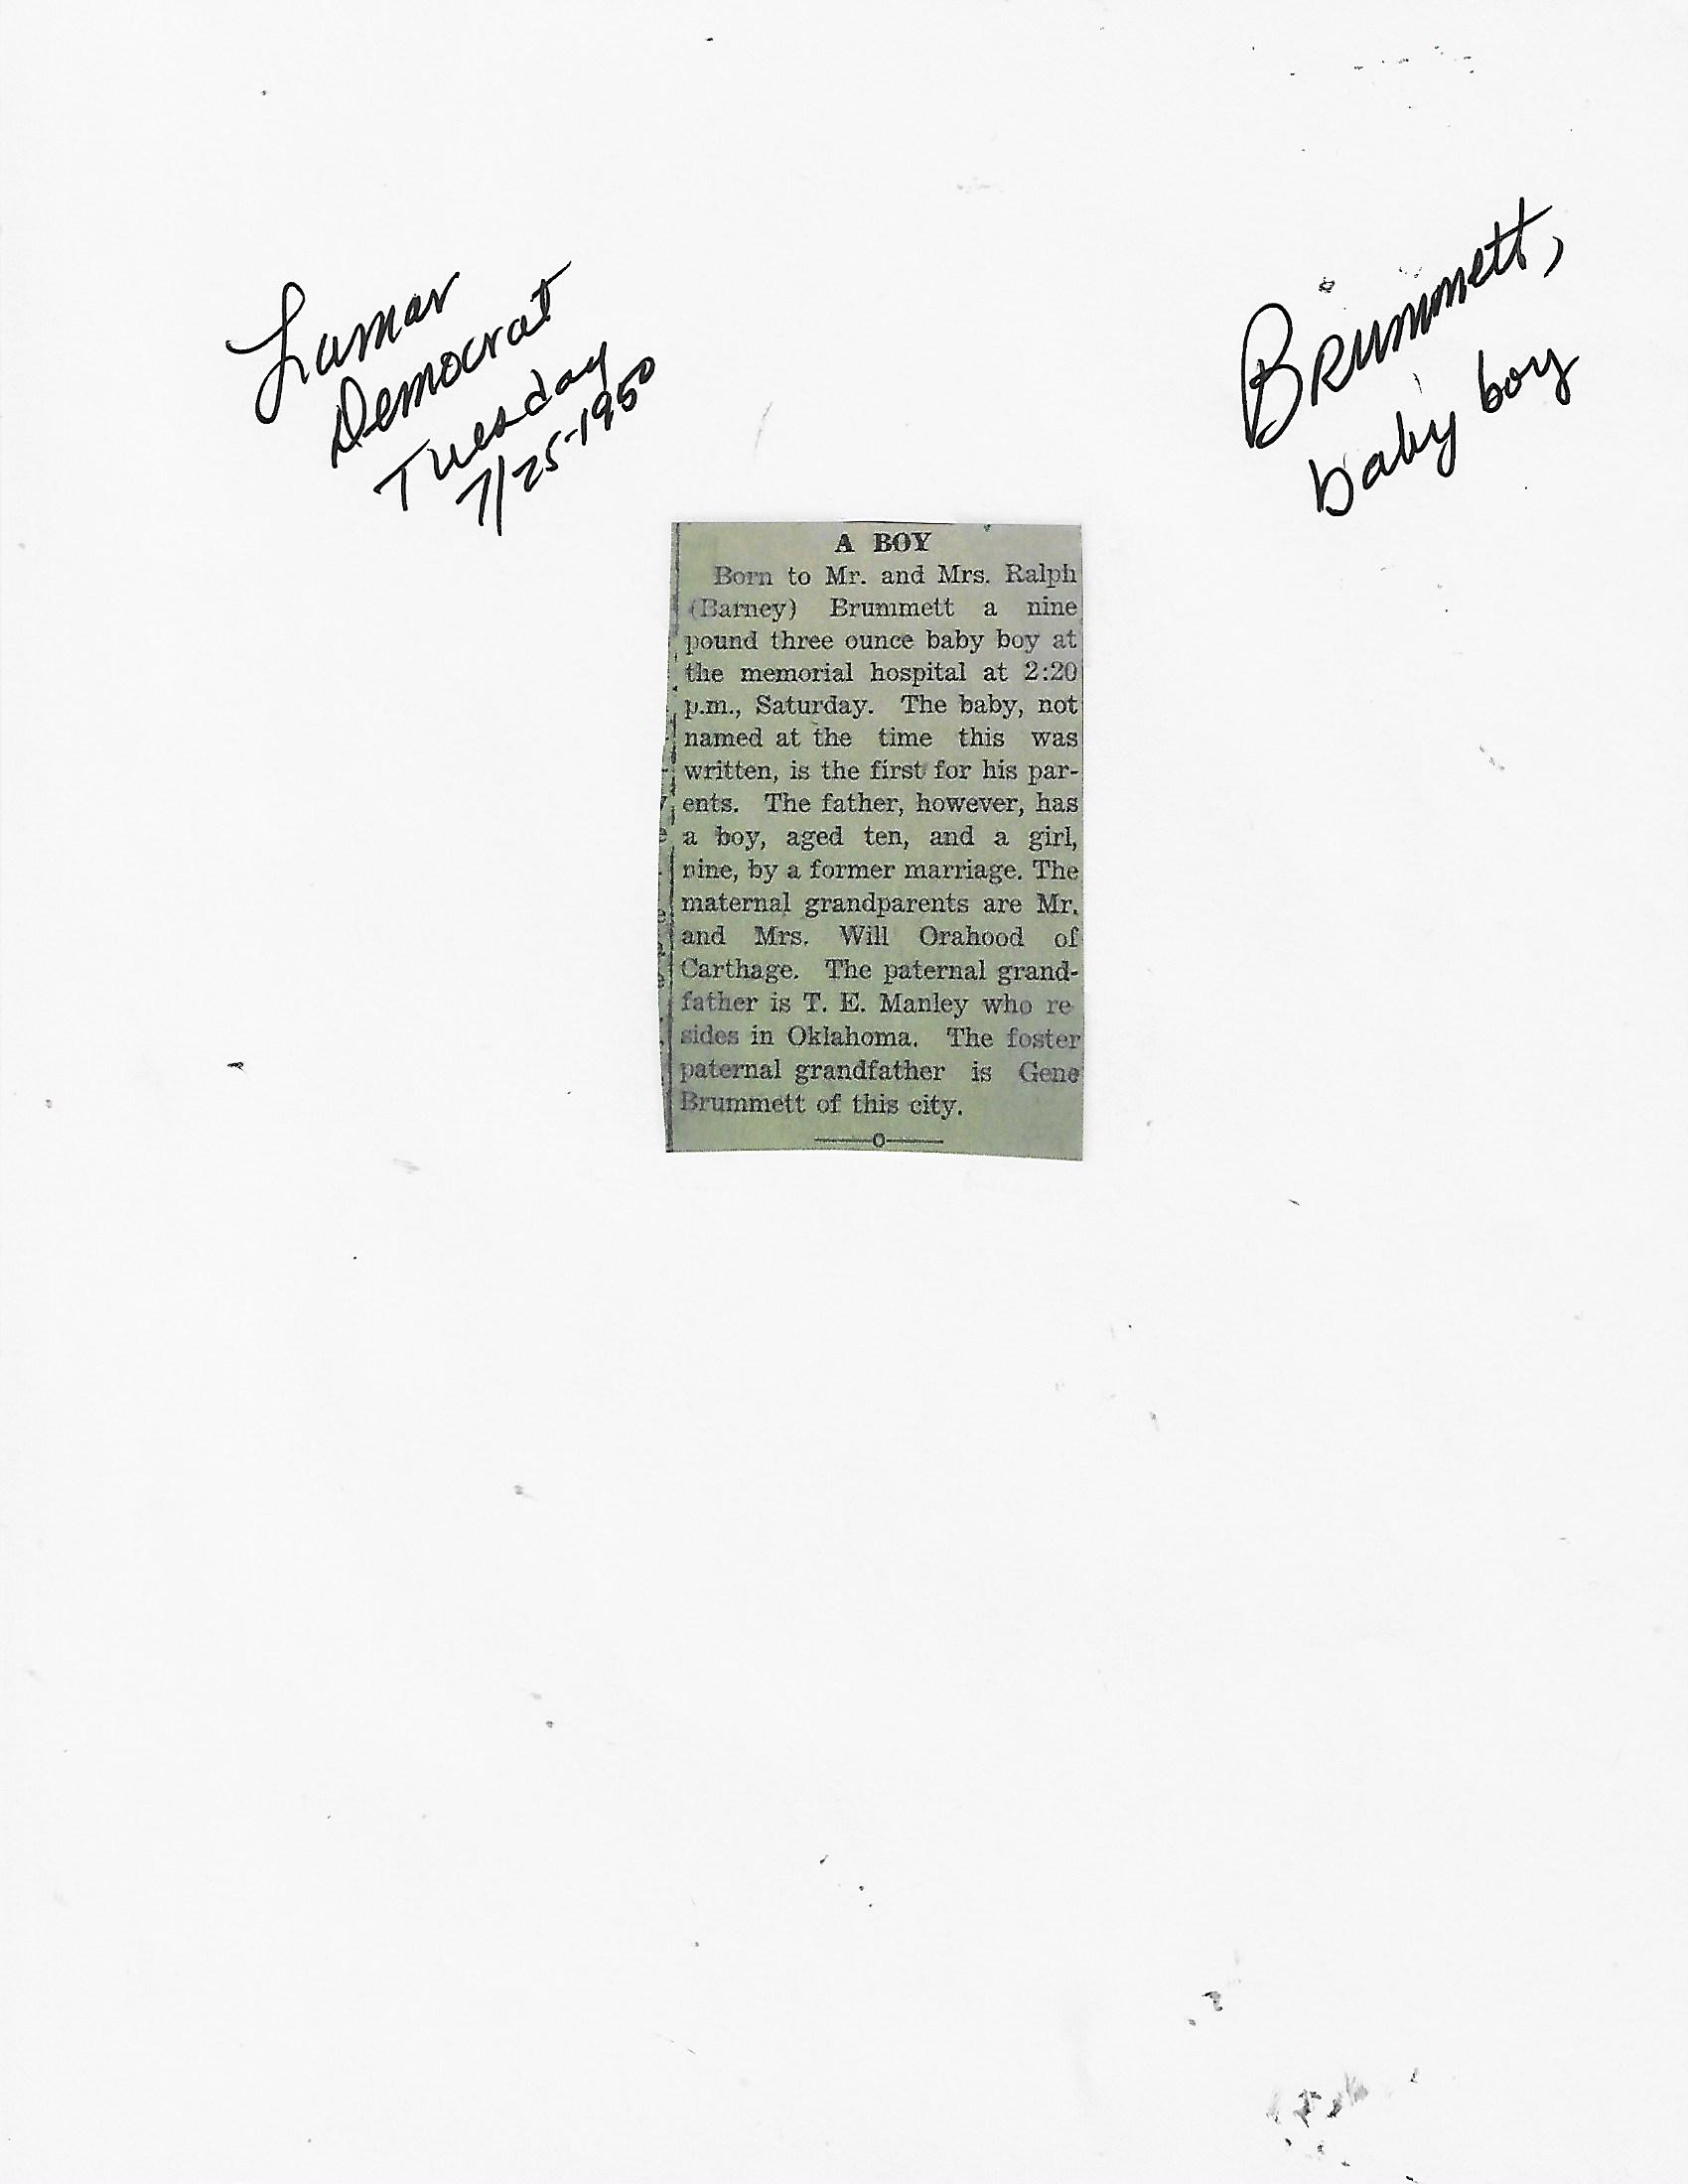 Lamar
Democrat
Tuesday
7/25-1950
Brummett,
baby boy
A BOY
Born to Mr. and Mrs. Ralph
(Barney) Brummett a nine
pound three ounce baby boy at
the memorial hospital at 2:20
p.m., Saturday. The baby, not
named at the time this was
written, is the first for his par-
ents. The father, however, has
a boy, aged ten, and a girl,
nine, by a former marriage. The
maternal grandparents are Mr.
and Mrs. Will Orahood of
Carthage. The paternal grand-
father is T. E. Manley who re-
sides in Oklahoma. The foster
paternal grandfather is Gene
Brummett of this city.